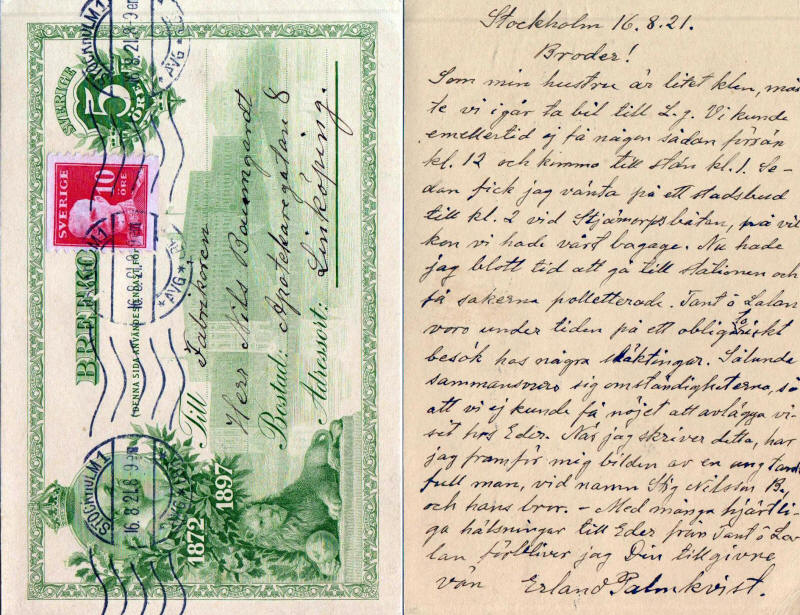 SVERIGE
5
ÖRE
SVERIGE
10
ÖRE
STOCKHOLM 1
16.8.21.8-9 em
*AVG*
BREFKORT
(DENNA SIDA ANVÄNDES ENDAST FÖR
Till Fabrikören
Herr Nils Baumgardt
Bostad: Apotekaregatan 8
Adressort: Linköping.
1872 1897
Stockholm 16.8.21.
Broder!
Som min hustru är litet klen, mås
te vi igår ta bil till L-g. Vi kunde
emellertid ej få någon sådan förrän
kl. 12 och kommo till stån kl. 1. Se-
dan fick jag vänta på ett stadsbud
till kl. 2 vid Stjärnorpsbåten, på vil
ken vi hade vårt bagage. Nu hade
jag blott tid att gå till stationen och
få sakerna polletterade. Tant o Lalan
voro under tiden på ett obligatoriskt
besök hos några släktingar. Sålunda
sammansvuro sig omständigheterna, så
att vi ej kunde få nöjet att avlägga vi-
sit hos Eder. När jag skriver detta, har
jag framför mig bilden av en ung tand
full man, vid namn Stig Nilsson B.
och hans bror. – Med många hjärtli-
ga hälsningar till Eder från Tant o La-
lan förbliver jag Din tillgivne
vän Erland Palmkvist.